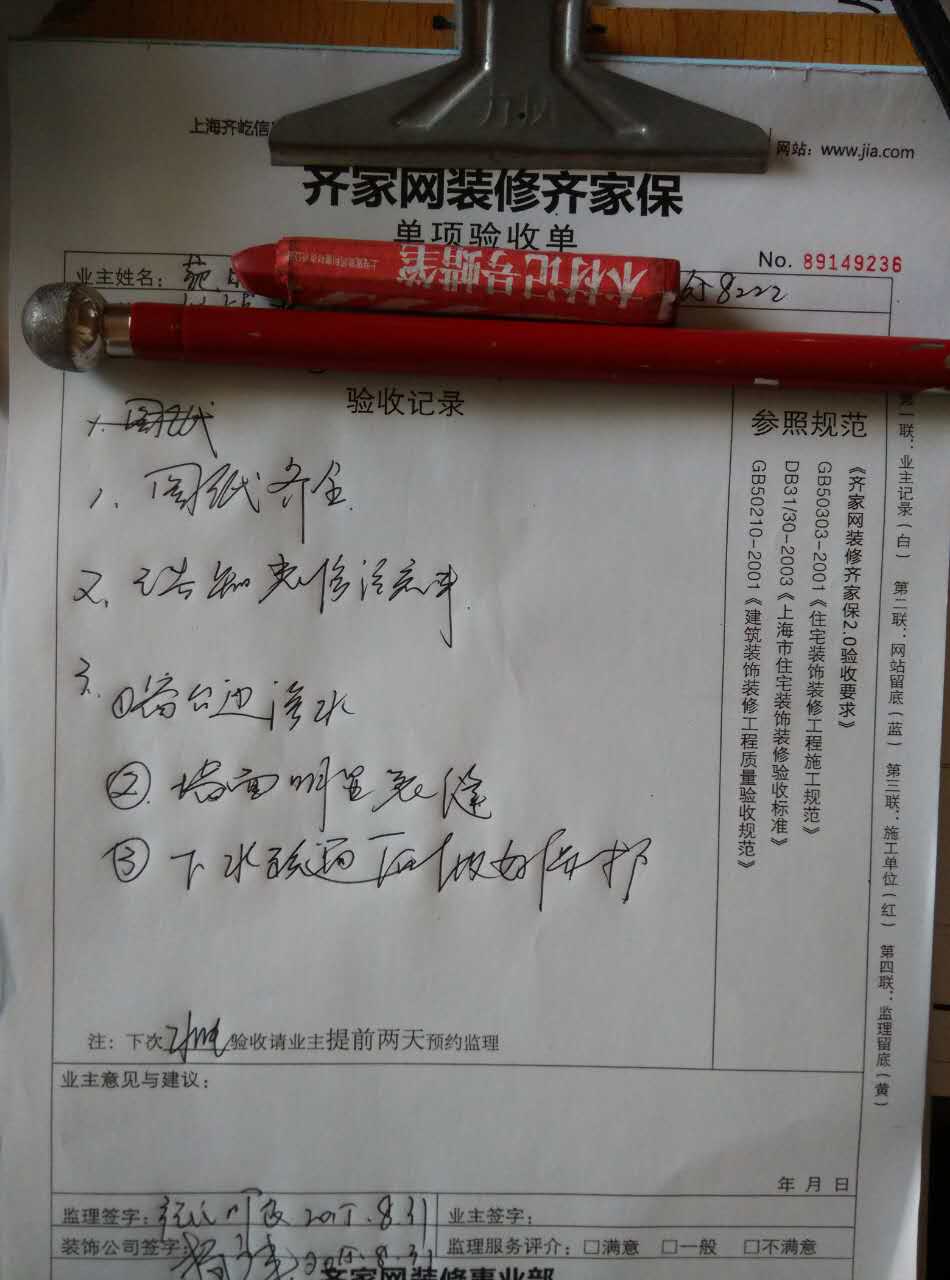 上海齐屹信
网站：www.jia.com
齐家网装修齐家保
单项验收单
No. 89149236
业主姓名：
8222
木材记号蜡笔
验收记录
1. 图纸
1. 图纸齐全
2. 告知装修注意事
3. ①窗台边渗水
②墙面明显裂缝
③下水疏通后做好保护
参照规范
《齐家网装修齐家保2.0验收要求》
GB50303-2001《住宅装饰装修工程施工规范》
DB31/30-2003《上海市住宅装饰装修验收标准》
GB50210-2001《建筑装饰装修工程质量验收规范》
第一联：业主记录（白） 第二联：网站留底（蓝） 第三联：施工单位（红） 第四联：监理留底（黄）
注：下次水电验收请业主提前两天预约监理
业主意见与建议：
年 月 日
监理签字： 2015.8.31
业主签字：
装饰公司签字： 2015.8.31
监理服务评介：□满意 □一般 □不满意
齐家网装修事业部